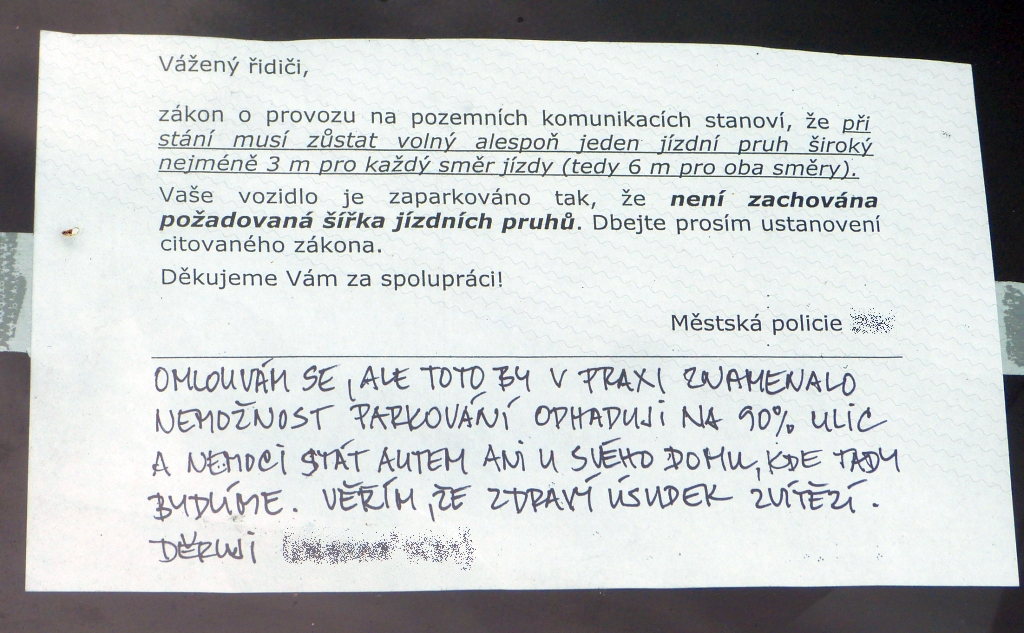 Vážený řidiči,
zákon o provozu na pozemních komunikacích stanoví, že při
stání musí zůstat volný alespoň jeden jízdní pruh široký
nejméně 3 m pro každý směr jízdy (tedy 6 m pro oba směry).
Vaše vozidlo je zaparkováno tak, že není zachována
požadovaná šířka jízdních pruhů. Dbejte prosím ustanovení
citovaného zákona.
Děkujeme Vám za spolupráci!
Městská policie
OMLOUVÁM SE, ALE TOTO BY V PRAXI ZNAMENALO
NEMOŽNOST PARKOVÁNÍ ODHADUJI NA 90% ULIC
A NEMOCI STÁT AUTEM ANI U SVÉHO DOMU, KDE TADY
BYDLÍME. VĚŘÍM, ŽE ZDRAVÝ ÚSUDEK ZVÍTĚZÍ.
DĚKUJI